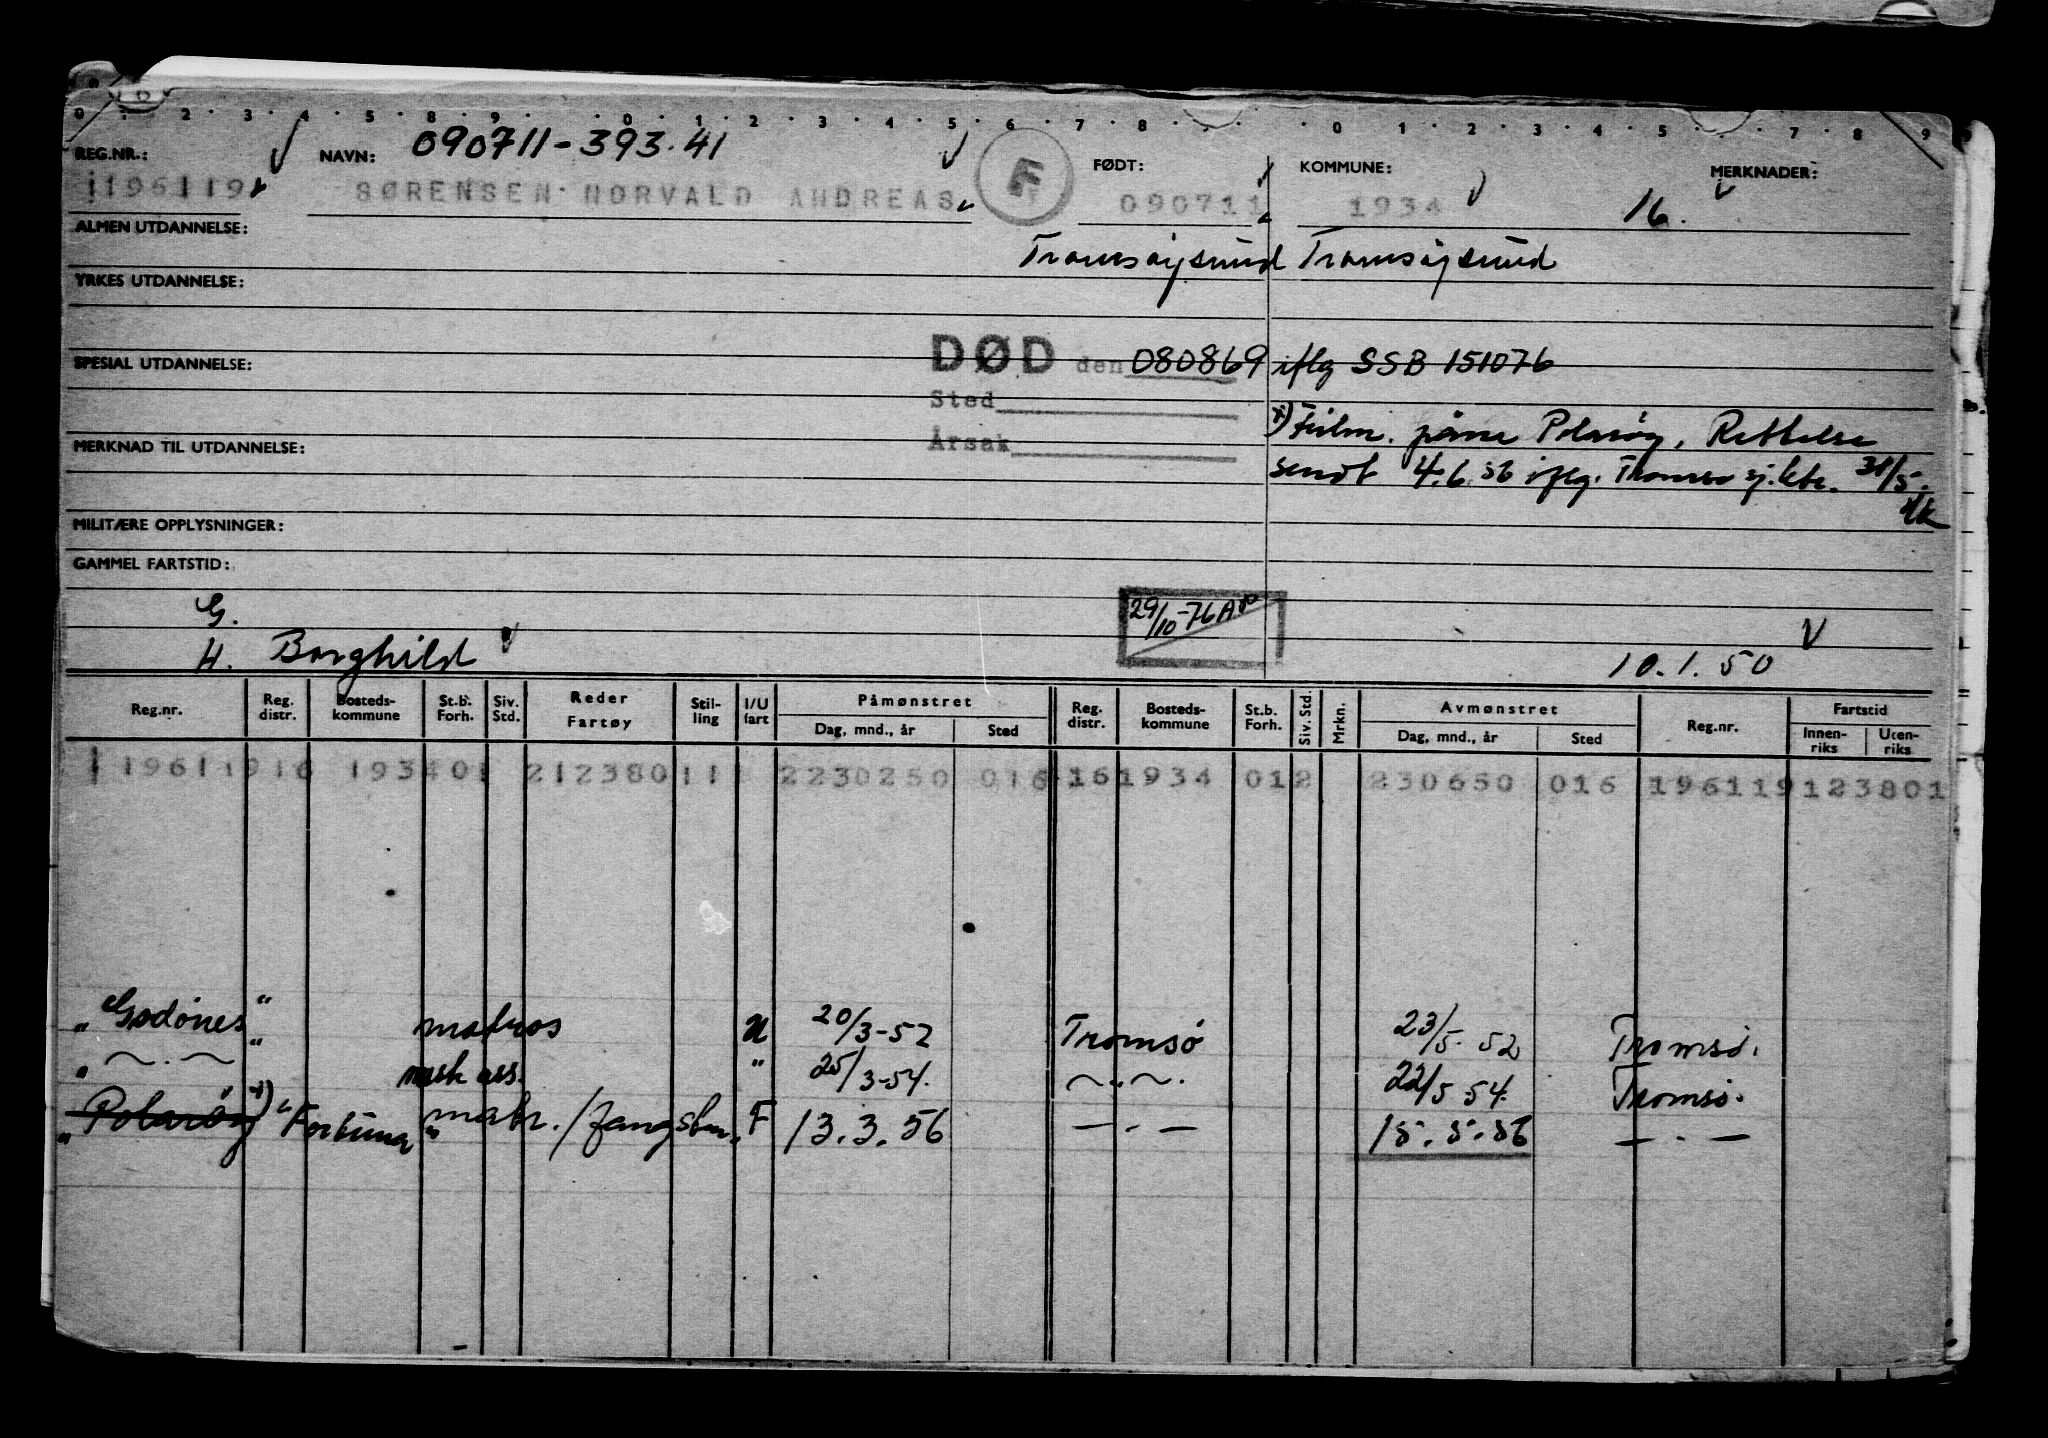 0 · 2 · 3 · 4 · 5 · 8 · 9 · 0 · 1 · 2 · 3 · 4 · 5 · 6 · 7 · 8 · 0 · 1 · 2 · 3 · 4 · 5 · 7 · 8 · 9
REG.NR.: NAVN: 090711-393.41 FØDT: KOMMUNE: MERKNADER:
1196119 SØRENSEN NORVALD ANDREAS F 090711 1934 16.
ALMEN UTDANNELSE:
Tromsøysund Tromsøysund
YRKES UTDANNELSE:
SPESIAL UTDANNELSE: DØD den 080869 iflg SSB 151076
Sted
x) Feilm. påm Polarøy, Rettelse
MERKNAD TIL UTDANNELSE: Årsak
sendt 4.6.56 iflg. Tromsø sj.ktr. 31/5.
MILITÆRE OPPLYSNINGER:
GAMMEL FARTSTID:
G. 29/10-76
H. Borghild V 10.1.50 V
Reg.nr. Reg. distr. Bosteds-kommune St.b. Forh. Siv. Std. Reder Fartøy Stil-ling I/U fart Påmønstret Dag, mnd., år Sted Reg. distr. Bosteds-kommune St.b. Forh. Siv. Std. Mrkn. Avmønstret Dag, mnd., år Sted Reg.nr. Fartstid Innen-riks Uten-riks
1196119 16 1934 01 212380 11 2230250 016 16 1934 012 230650 016 196119 123801
"Godønes" matros U 20/3-52 Tromsø 23/5-52 Tromsø.
" ~ . ~ " mask ass. " 25/3-54. ~ " ~. 22/5 54. Tromsø.
"Polarøy x) "Fortuna" matr./fangstm. F 13.3.56 — . — 15.5.56 — . —